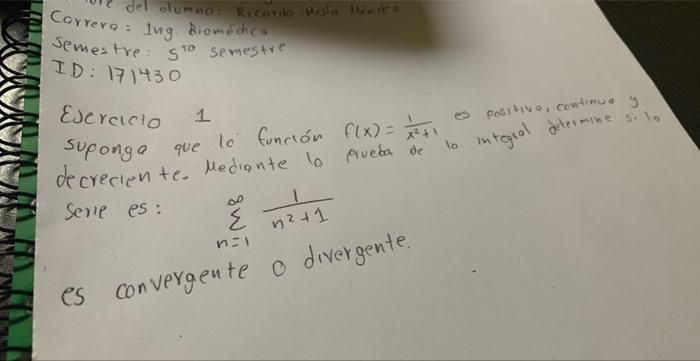 del alumno: Ricardo Mejía
Carrera: Ing. Biomédica
Semestre: 5to semestre
ID: 171430
Ejercicio 1
suponga que la función f(x) = 1/(x²+1) es positiva, continua y
decreciente. Mediante la prueba de la integral determine si la
serie es: ∞ ∑ n=1 1/(n²+1)
es convergente o divergente.